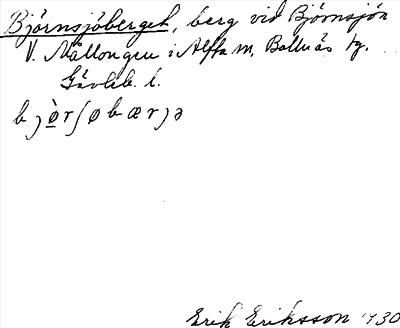 Björnsjöberget, berg vid Björnsjön
V. Mållongen i Alfta sn, Bollnäs tg.
Gävleb. l.
bjø̀rʃøbærjə
Erik Eriksson 1930